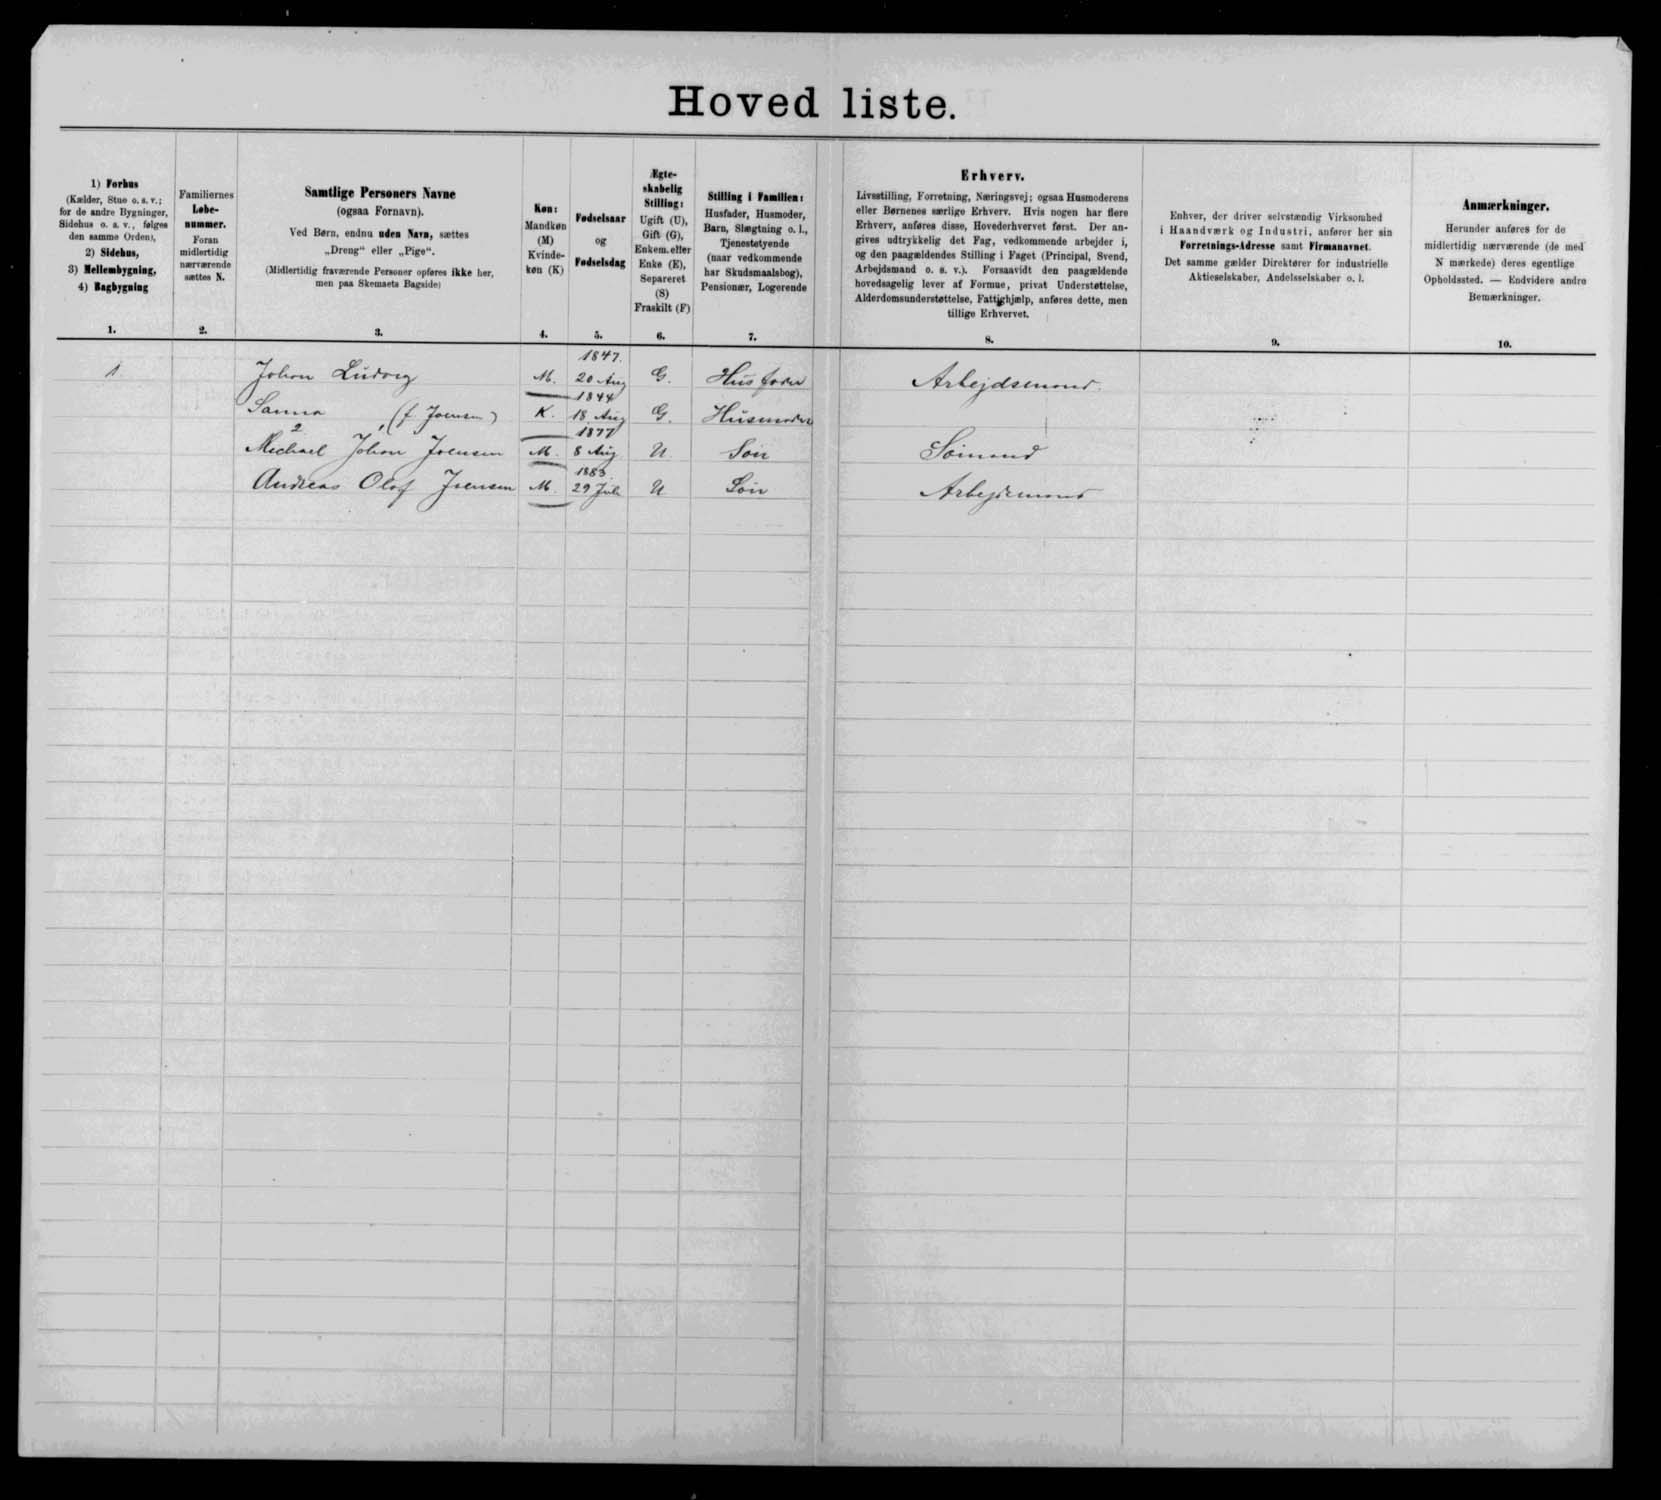 Hoved liste.
1) Forhus
(Kælder, Stue o. s. v.;
for de andre Bygninger,
Sidehus o. s. v., følges
den samme Orden),
2) Sidehus,
3) Mellembygning,
4) Bagbygning
1.
Familiernes
Løbe-
nummer.
Foran
midlertidig
nærværende
sættes N.
2.
Samtlige Personers Navne
(ogsaa Fornavn).
Ved Børn, endnu uden Navn, sættes
„Dreng“ eller „Pige“.
(Midlertidig fraværende Personer opføres ikke her,
men paa Skemaets Bagside)
3.
Køn:
Mandkøn
(M)
Kvinde-
køn (K)
4.
Fødselsaar
og
Fødselsdag
5.
Ægte-
skabelig
Stilling:
Ugift (U),
Gift (G),
Enkem. eller
Enke (E),
Separeret
(S)
Fraskilt (F)
6.
Stilling i Familien:
Husfader, Husmoder,
Barn, Slægtning o. l.,
Tjenestetyende
(naar vedkommende
har Skudsmaalsbog),
Pensionær, Logerende
7.
Erhverv.
Livsstilling, Forretning, Næringsvej; ogsaa Husmoderens
eller Børnenes særlige Erhverv. Hvis nogen har flere
Erhverv, anføres disse, Hovederhvervet først. Der an-
gives udtrykkelig det Fag, vedkommende arbejder i,
og den paagældendes Stilling i Faget (Principal, Svend,
Arbejdsmand o. s. v.). Forsaavidt den paagældende
hovedsagelig lever af Formue, privat Understøttelse,
Alderdomsunderstøttelse, Fattighjælp, anføres dette, men
tillige Erhvervet.
8.
Enhver, der driver selvstændig Virksomhed
i Haandværk og Industri, anfører her sin
Forretnings-Adresse samt Firmanavnet.
Det samme gælder Direktører for industrielle
Aktieselskaber, Andelsselskaber o. l.
9.
Anmærkninger.
Herunder anføres for de
midlertidig nærværende (de med
N mærkede) deres egentlige
Opholdssted. — Endvidere andre
Bemærkninger.
10.
1847.
1 Johan Ludvig M. 20 Aug G. Husfader Arbejdsmand.
1844
Sanna (f. Joensen) K. 18 Aug G. Husmoder
2 1877
Michael Johan Joensen M. 8 Aug U Søn Sømand
1883
Andreas Olaf Joensen M. 29 Juli U Søn Arbejdsmand